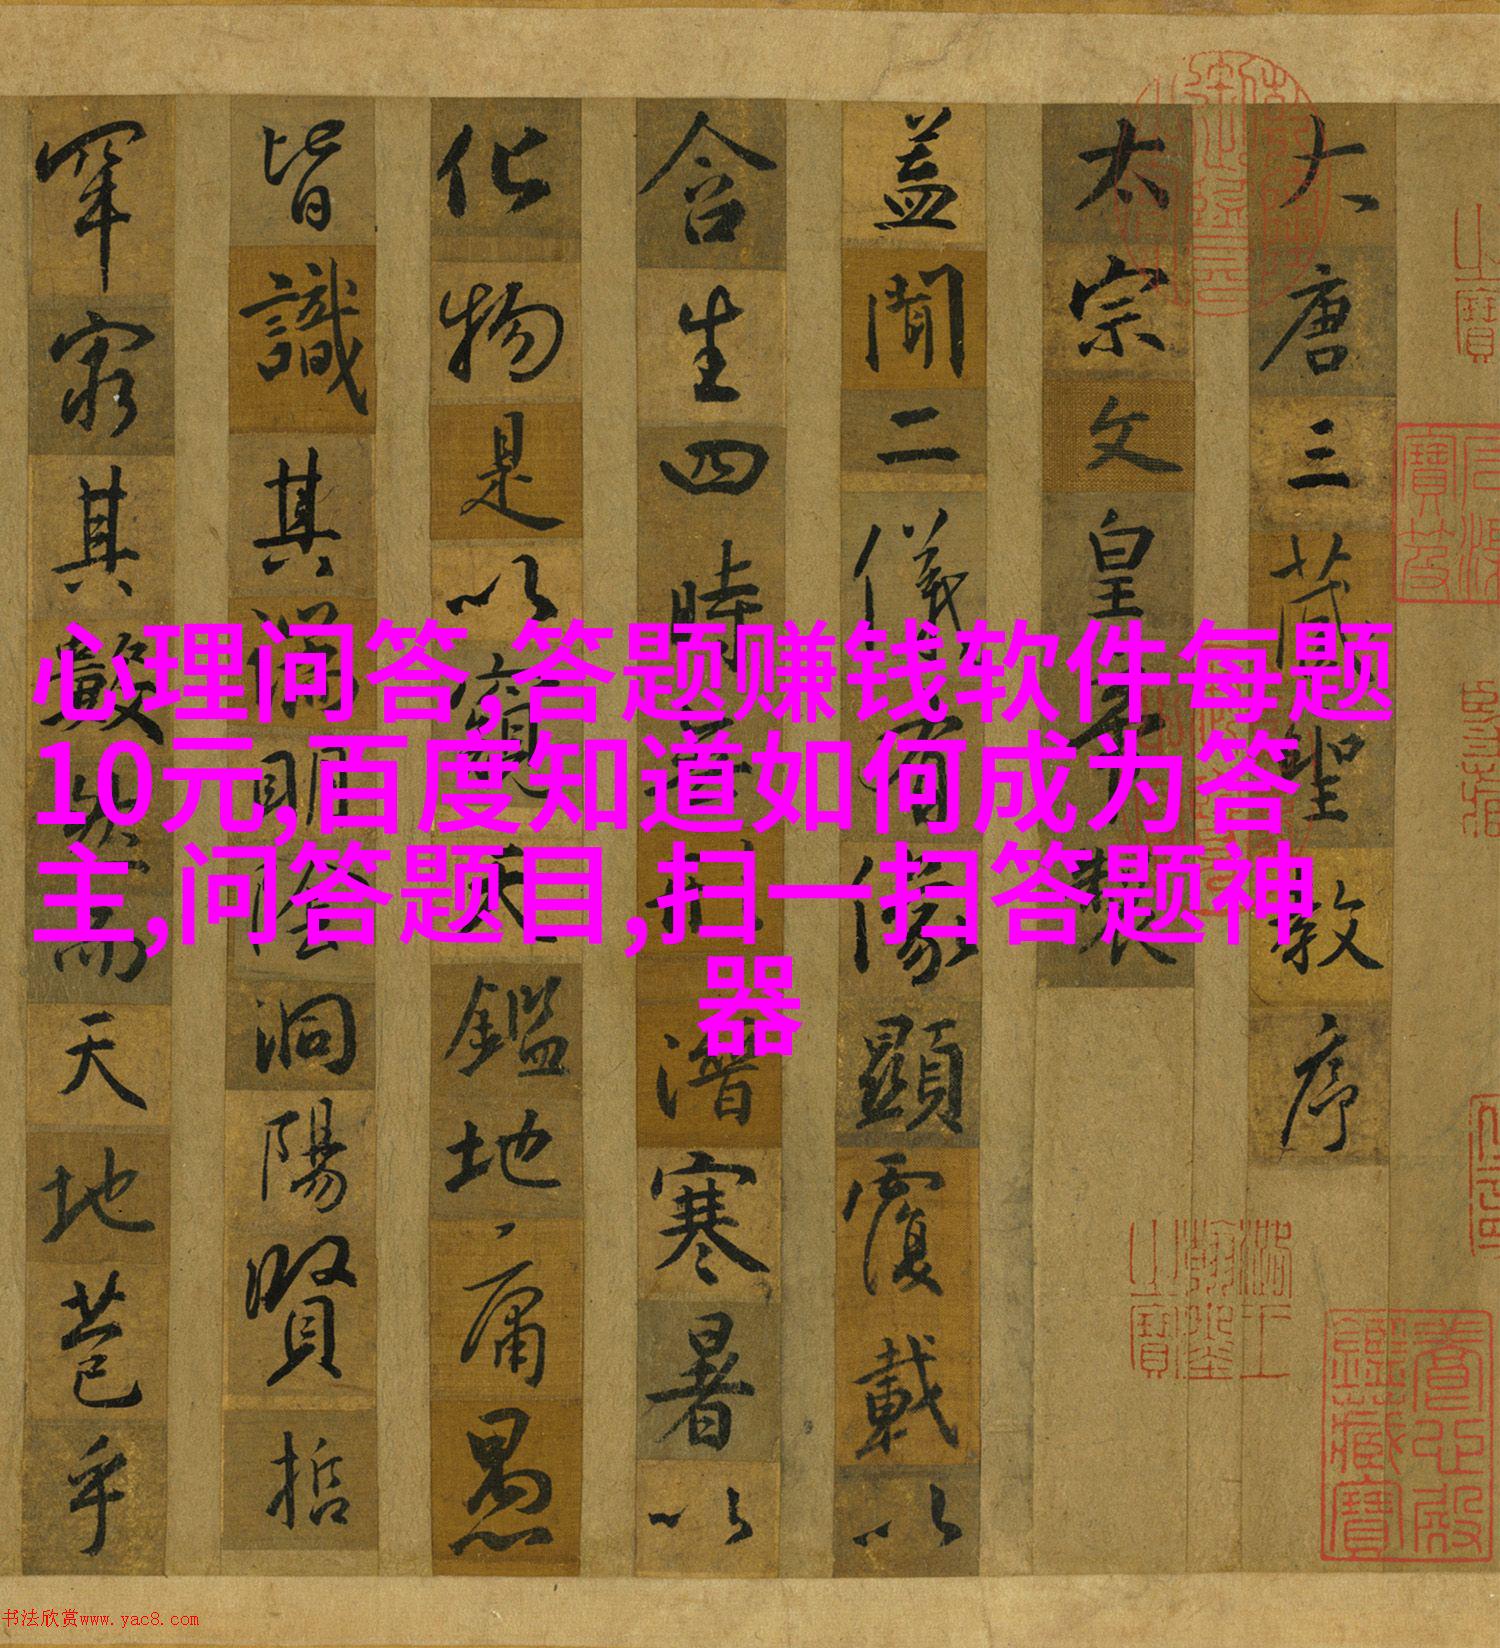 大唐三藏聖教序
太宗文皇帝製
蓋聞二儀有像顯覆載以
含生四時無形潛寒暑以
化物是以窺天鑑地庸愚
皆識其端明陰洞陽賢哲
罕窮其數然而天地苞乎
心理问答,答题赚钱软件每题
10元,百度知道如何成为答
主,问答题目,扫一扫答题神
器
书法欣赏www.yac8.com